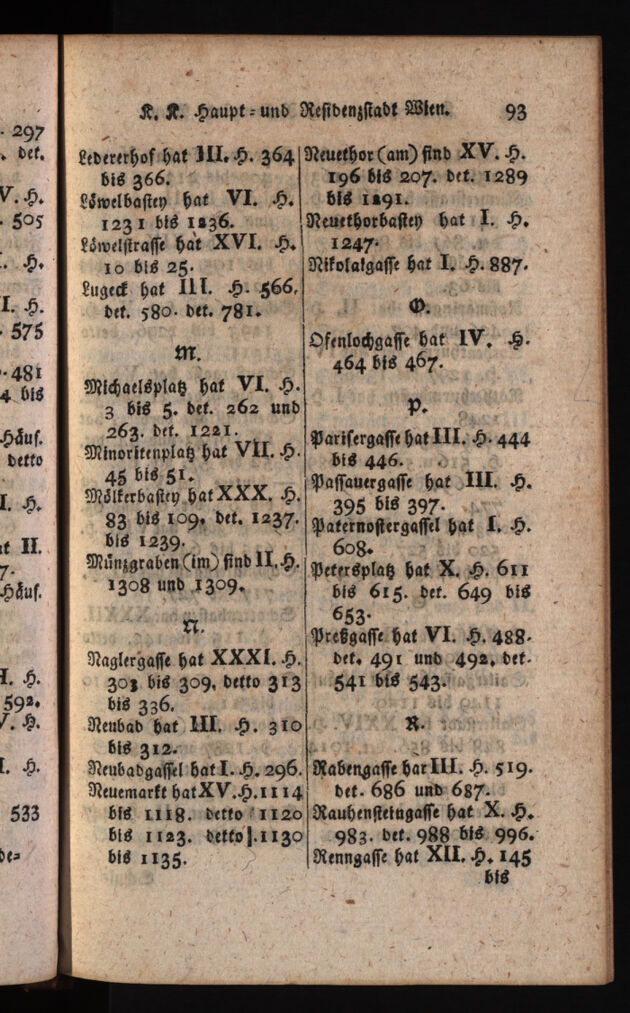 297
det.
V. H.
505
H.
I. H.
575
481
4 bis
Häus.
detto
I. H.
II.
7.
Häus.
H.
592.
V. H.
I. H.
533
de=
K. K. Haupt= und Residenzstadt Wien. 93
Ledererhof hat III. H. 364
bis 366.
Löwelbastey hat VI. H.
1231 bis 1236.
Löwelstrasse hat XVI. H.
10 bis 25.
Lugeck hat III. H. 566.
det. 580. det. 781.
M.
Michaelsplatz hat VI. H.
3 bis 5. det. 262 und
263. det. 1221.
Minoritenplatz hat VII. H.
45 bis 51.
Mölkerbastey hat XXX. H.
83 bis 109. det. 1237.
bis 1239.
Münzgraben (im) sind II. H.
1308 und 1309.
N.
Naglergasse hat XXXI. H.
303 bis 309. detto 313
bis 336.
Neubad hat III. H. 310
bis 312.
Neubadgassel hat I. H. 296.
Neuemarkt hat XV. H. 1114
bis 1118. detto 1120
bis 1123. detto 1130
bis 1135.
Neuethor (am) sind XV. H.
196 bis 207. det. 1289
bis 1291.
Neuethorbastey hat I. H.
1247.
Nikolaigasse hat I. H. 887.
O.
Ofenlochgasse hat IV. H.
464 bis 467.
P.
Parisergasse hat III. H. 444
bis 446.
Passauergasse hat III. H.
395 bis 397.
Paternostergassel hat I. H.
608.
Petersplatz hat X. H. 611
bis 615. det. 649 bis
653.
Preßgasse hat VI. H. 488.
det. 491 und 492. det.
541 bis 543.
R.
Rabengasse hat III. H. 519.
det. 686 und 687.
Rauhensteingasse hat X. H.
983. det. 988 bis 996.
Renngasse hat XII. H. 145
bis